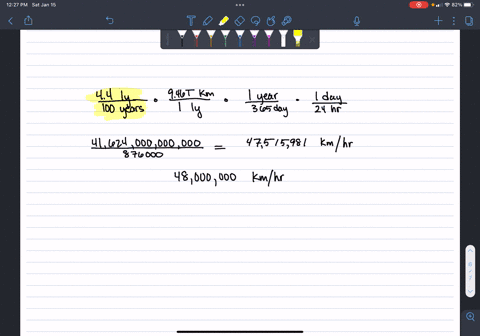 12:27 PM Sat Jan 15
82%
4.4 ly / 100 years • 9.46T Km / 1 ly • 1 year / 365 day • 1 day / 24 hr
41,624,000,000,000 / 876000 = 47,515,981 Km/hr
48,000,000 Km/hr